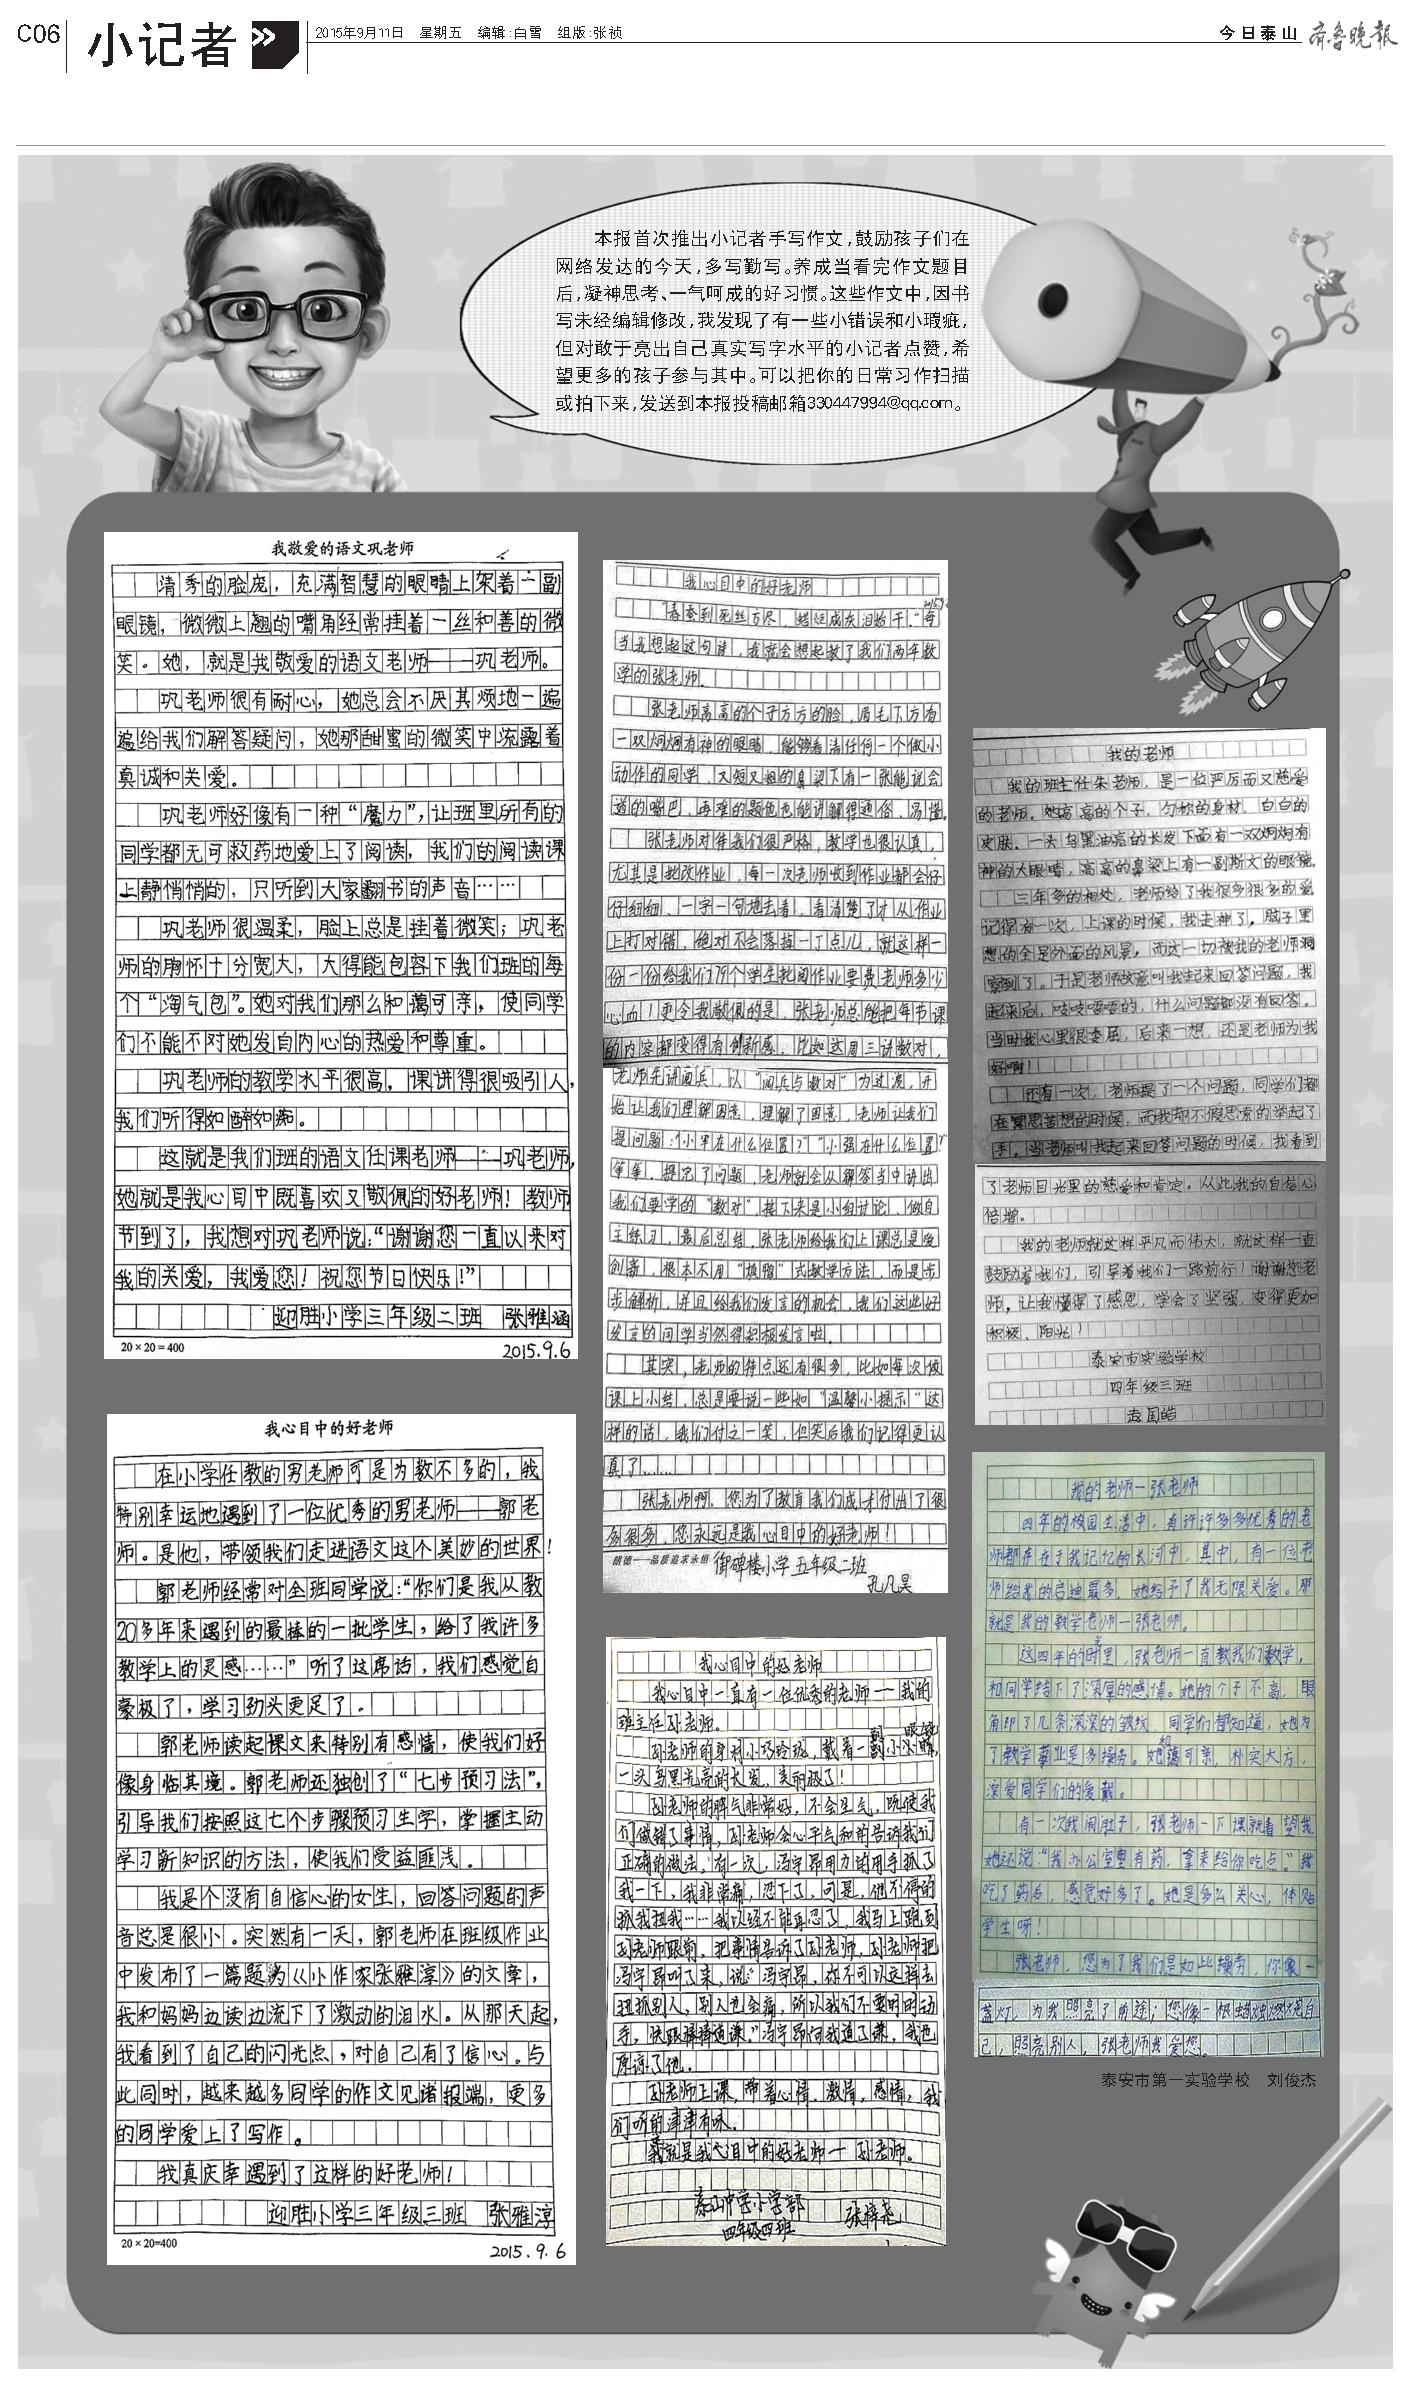 C06
小记者
2015年9月11日 星期五 编辑:白雪 组版:张祯
今日泰山 齐鲁晚报
本报首次推出小记者手写作文,鼓励孩子们在
网络发达的今天,多写勤写。养成当看完作文题目
后,凝神思考、一气呵成的好习惯。这些作文中,因书
写未经编辑修改,我发现了有一些小错误和小瑕疵,
但对敢于亮出自己真实写字水平的小记者点赞,希
望更多的孩子参与其中。可以把你的日常习作扫描
或拍下来,发送到本报投稿邮箱330447994@qq.com。
我敬爱的语文巩老师
清秀的脸庞，充满智慧的眼睛上架着一副
眼镜，微微上翘的嘴角经常挂着一丝和善的微
笑。她，就是我敬爱的语文老师——巩老师。
巩老师很有耐心，她总会不厌其烦地一遍
遍给我们解答疑问，她那甜蜜的微笑中流露着
真诚和关爱。
巩老师好像有一种“魔力”，让班里所有的
同学都无可救药地爱上了阅读，我们的阅读课
上静悄悄的，只听到大家翻书的声音……
巩老师很温柔，脸上总是挂着微笑；巩老
师的胸怀十分宽大，大得能包容下我们班的每
个“淘气包”。她对我们那么和蔼可亲，使同学
们不能不对她发自内心的热爱和尊重。
巩老师的教学水平很高，课讲得很吸引人，
我们听得如醉如痴。
这就是我们班的语文任课老师——巩老师，
她就是我心目中既喜欢又敬佩的好老师！教师
节到了，我想对巩老师说：“谢谢您一直以来对
我的关爱，我爱您！祝您节日快乐！”
迎胜小学三年级二班 张雅涵
20×20=400
2015.9.6
我心目中的好老师
在小学任教的男老师可是为数不多的，我
特别幸运地遇到了一位优秀的男老师——郭老
师。是他，带领我们走进语文这个美妙的世界！
郭老师经常对全班同学说：“你们是我从教
20多年来遇到的最棒的一批学生，给了我许多
教学上的灵感……”听了这席话，我们感觉自
豪极了，学习劲头更足了。
郭老师读起课文来特别有感情，使我们好
像身临其境。郭老师还独创了“七步预习法”，
引导我们按照这七个步骤预习生字，掌握主动
学习新知识的方法，使我们受益匪浅。
我是个没有自信心的女生，回答问题的声
音总是很小。突然有一天，郭老师在班级作业
中发布了一篇题为《小作家张雅淳》的文章，
我和妈妈边读边流下了激动的泪水。从那天起，
我看到了自己的闪光点，对自己有了信心。与
此同时，越来越多同学的作文见诸报端，更多
的同学爱上了写作。
我真庆幸遇到了这样的好老师！
迎胜小学三年级三班 张雅淳
20×20=400
2015.9.6
我心目中的好老师
“春蚕到死丝方尽，蜡炬成灰泪始干。”每
当我想起这句诗，我就会想起教了我们两年数
学的张老师。
张老师高高的个子方方的脸，眉毛下方有
一双炯炯有神的眼睛，能够看清任何一个做小
动作的同学，又短又粗的鼻梁下有一张能说会
道的嘴巴，再难的题他也能讲解得通俗、易懂。
张老师对待我们很严格，教学也很认真，
尤其是批改作业，每一次老师收到作业都会仔
仔细细、一字一句地去看，看清楚了才从作业
上打对错，绝对不会落掉一丁点儿，就这样一
份一份给我们79个学生批阅作业要费老师多少
心血！更令我敬佩的是，张老师总能把每节课
的内容都变得有创新感，比如这周三讲数对，
老师先讲阅兵，以“阅兵与数对”为过渡，开
始让我们理解图意，理解了图意，老师让我们
提问题：“小军在什么位置？”“小强在什么位置？”
等等，提完了问题，老师就会从解答当中讲出
我们要学的“数对”，接下来是小组讨论，做自
主练习，最后总结，张老师给我们上课总是爱
创新，根本不用“填鸭”式教学方法，而是步
步解析，并且给我们发言的机会，我们这些好
发言的同学当然得积极发言啦。
其实，老师的特点还有很多，比如每次做
课上小结，总是要说一些如“温馨小提示”这
样的话，我们付之一笑，但笑后我们记得更认
真了……
张老师啊，您为了教育我们成才付出了很
多很多，您永远是我心目中的好老师！
朗德——品质追求永恒
御碑楼小学五年级二班
孔凡昊
我心目中的好老师
我心目中一直有一位优秀的老师——我的
班主任孙老师。
孙老师的身材小巧玲珑，戴着一副
一头乌黑光亮的长发，美丽极了！
孙老师的脾气非常好，不会生气，既使我
们做错了事情，孙老师会心平气和的告诉我们
正确的做法。有一次，冯宇昂用力的用手抓了
我一下，我非常痛，忍下了，可是，他不停的
抓我扭我……我以经不能再忍了，我马上跑到
孙老师跟前，把事情告诉了孙老师，孙老师把
冯宇昂叫了来，说：“冯宇昂，你不可以这样去
扭抓别人，别人也会痛，所以我们不要时时动
手，
冯宇昂向我道了谦，我也
原谅了他。
孙老师上课，带着心情，激情，感情，我
们听的津津有味。
就是我心目中的好老师——孙老师。
泰山中学小学部
四年级四班 张梓尧
我的老师
我的班主任朱老师，是一位严厉而又慈爱
的老师。她高高的个子，匀称的身材，白白的
皮肤。一头乌黑油亮的长发下面有一双炯炯有
神的大眼睛，高高的鼻梁上有一副斯文的眼镜。
三年多的相处，老师给了我很多很多的爱
记得有一次，上课的时候，我走神了。脑子里
想的全是外面的风景，而这一切被我的老师洞
察到了。于是老师故意叫我起来回答问题，我
起来后，吱吱唔唔的，什么问题都没有回答。
当时我心里很委屈，后来一想，还是老师为我
好啊！
还有一次，老师提了一个问题，同学们都
在冥思苦想的时候，而我却不假思索的举起了
手。当老师叫我起来回答问题的时候，我看到
了老师目光里的慈爱和肯定。从此我的自信心
倍增。
我的老师就这样平凡而伟大，就这样一直
鼓励着我们，引导着我们一路前行！谢谢您老
师，让我懂得了感恩，学会了坚强，变得更加
积极、阳光！
泰安市实验学校
四年级三班
我的老师—张老师
四年的校园生活中，有许许多多优秀的老
师都存在于我记忆的长河中，其中，有一位老
师给我的启迪最多，她给予了我无限关爱。那
就是我的数学老师—张老师。
这四年的时光里，张老师一直教我们数学，
和同学结下了深厚的感情。她的个子不高，眼
角印了几条深深的皱纹，同学们都知道，她为
了教学事业是多操劳。她和蔼可亲，朴实大方，
深爱同学们的爱戴。
有一次我闹肚子，张老师一下课就看望我
她还说“我办公室里有药，拿来给你吃点。”我
吃了药后，感觉好多了。她是多么关心，体贴
学生呀！
张老师，您为了我们是如此操劳，你像一
盏灯，为我照亮了前途；您像一根蜡烛燃烧自
己，照亮别人，张老师我爱您。
泰安市第一实验学校 刘俊杰